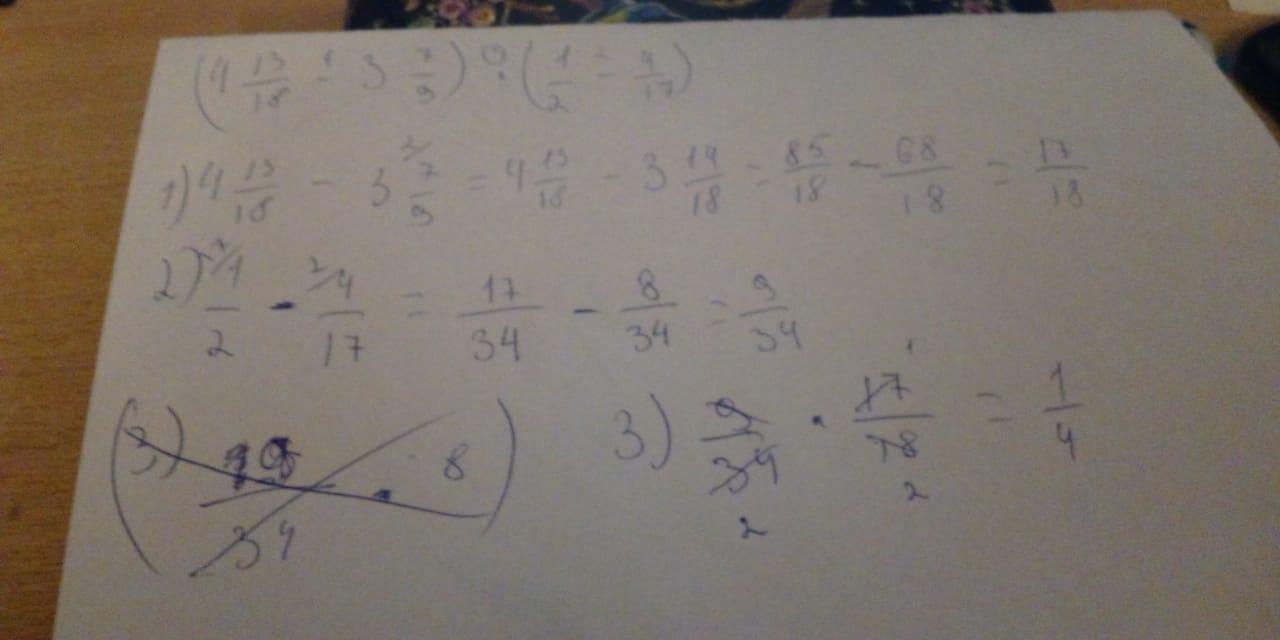 (4 13/18 - 3 7/9) : (1/2 - 4/17)
1) 4 13/18 - 3 7/9 = 4 13/18 - 3 14/18 = 85/18 - 68/18 = 17/18
2) 1/2 - 4/17 = 17/34 - 8/34 = 9/34
3) 9/34 · 17/18 = 1/4